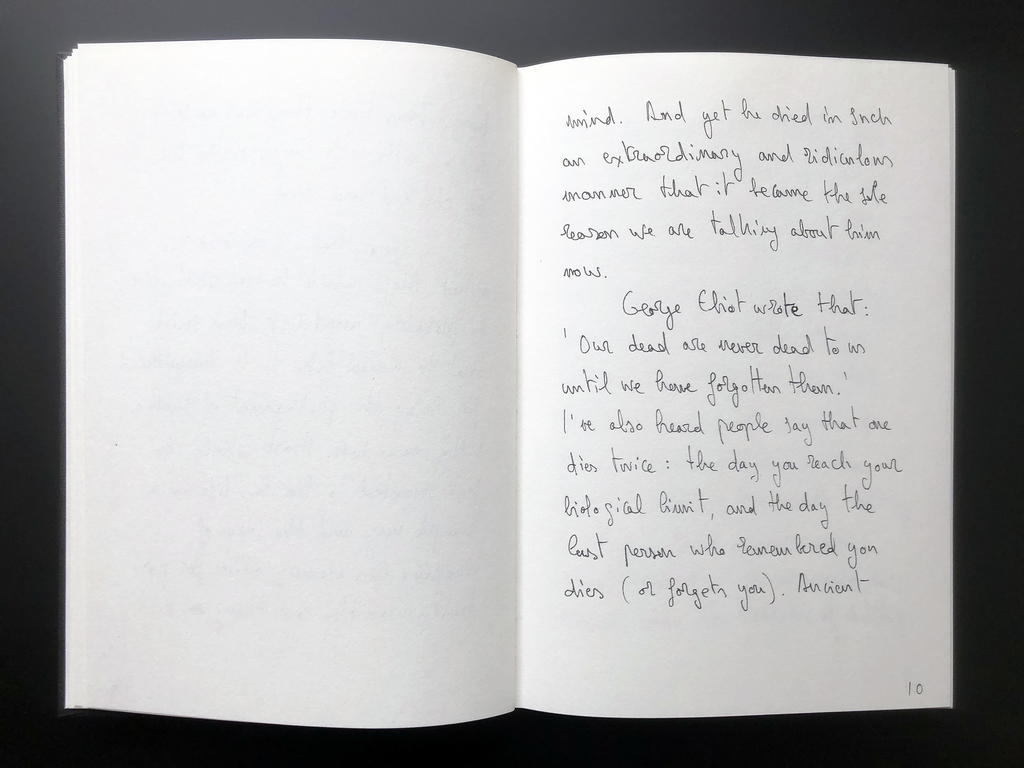 mind. And yet he died in such
an extraordinary and ridiculous
manner that it became the sole
reason we are talking about him
now.
George Eliot wrote that:
'Our dead are never dead to us
until we have forgotten them.'
I've also heard people say that one
dies twice: the day you reach your
biological limit, and the day the
last person who remembered you
dies (or forgets you). Ancient
10